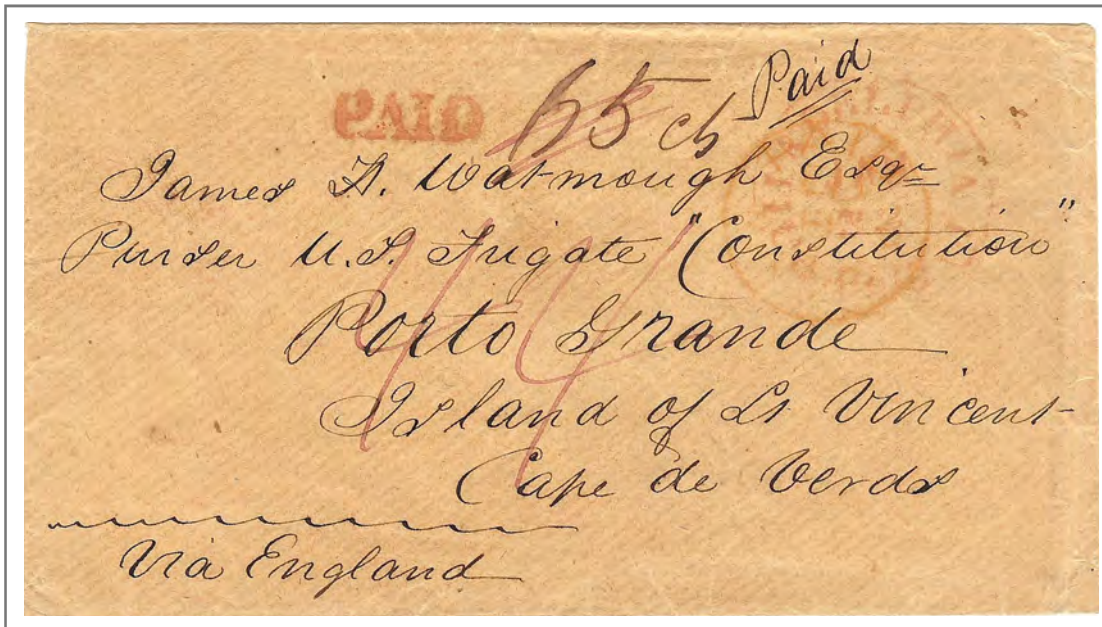 PAID 65 cts Paid
James H. Watmough Esqr
Purser U.S. Frigate "Constitution"
Porto Grande
Island of St Vincent
Cape de Verds
44
Via England